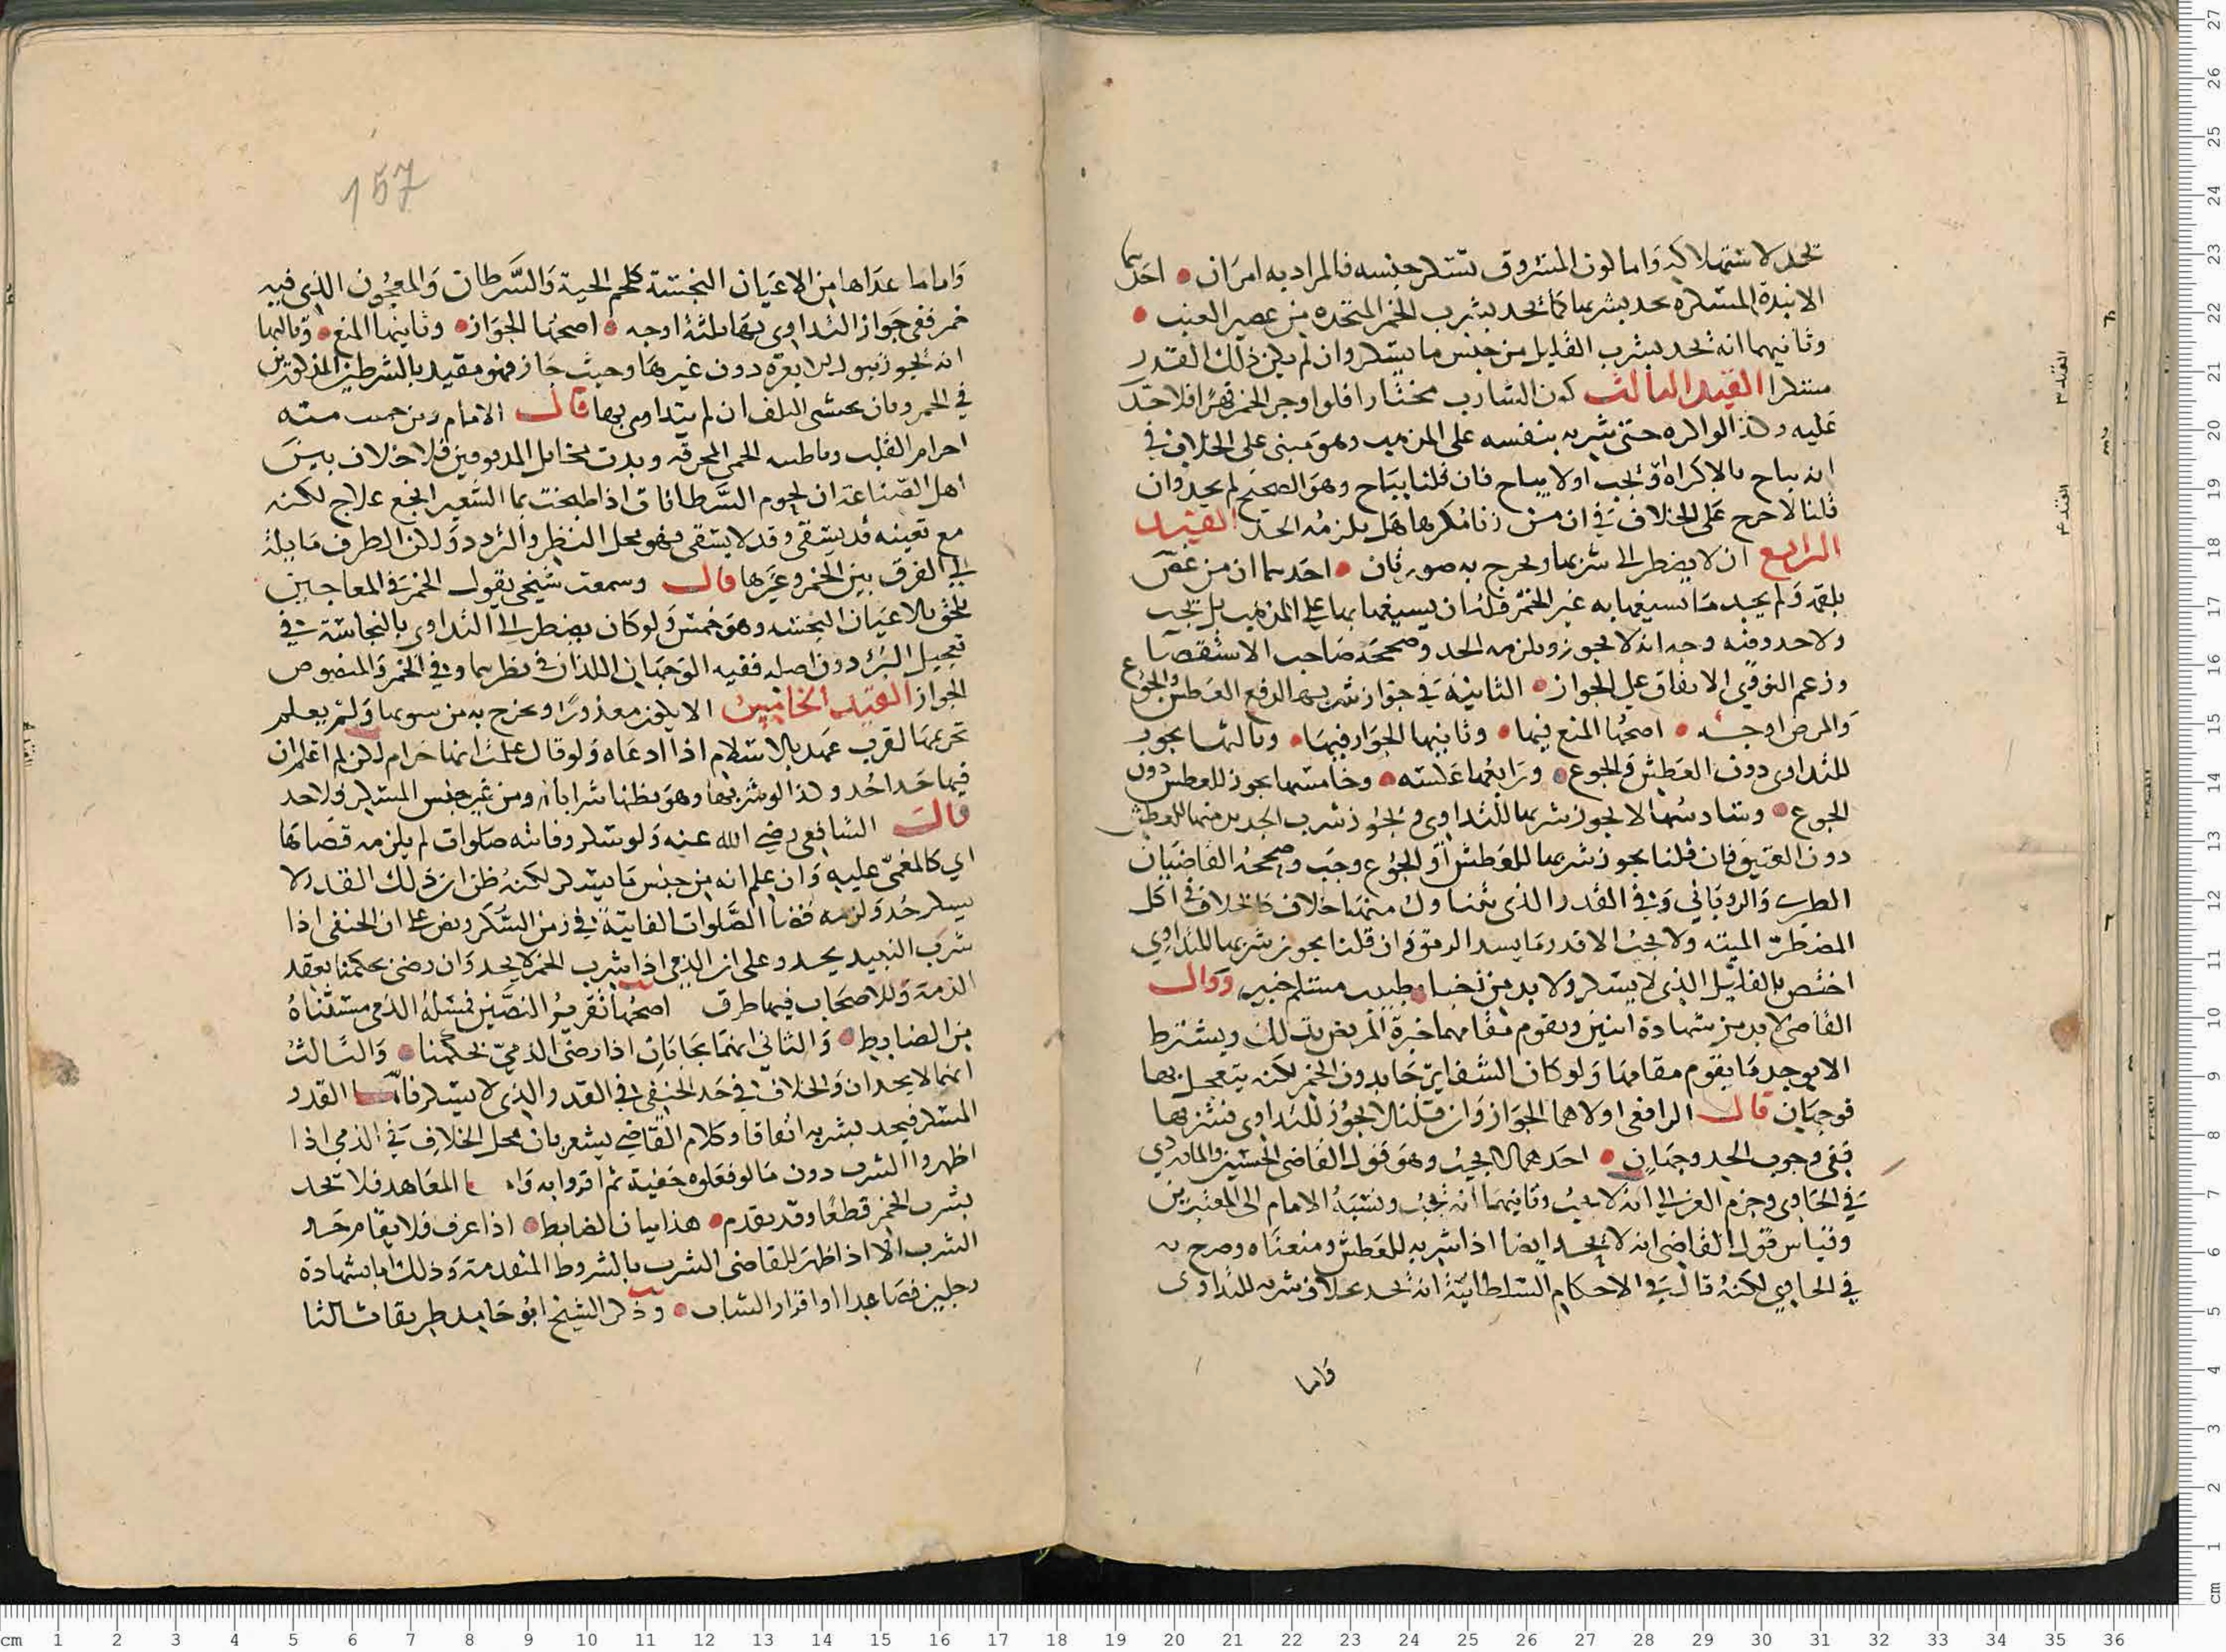 تحد لاستهلاكه واما كون المشروب يسكر جنسه فالمراد به امران احدهما
الانبذة المسكره يحد بشربها كما يحد بشرب الخمر المتخذه من عصير العنب
وثانيهما انه يحد بشرب القليل من جنس ما يسكر وان لم يكن ذلك القدر
مسكرا القيد الثالث كون الشارب مختارا فلو اوجر الخمر قهرا فلا حد
عليه وكذا لو اكره حتى شربه بنفسه على المذهب وهو مبني على الخلاف في
انه يباح بالاكراه او يجب او لا يباح فان قلنا يباح وهو الصحيح لم يحد وان
قلنا لا خرج على الخلاف في ان من زنا مكرها هل يلزمه الحد القيد
الرابع ان لا يضطر الى شربها ويخرج به صورتان احدهما ان من غص
بلقمة ولم يجد ما يسيغها به غير الخمر فله ان يسيغها بها على المذهب بل يجب
ولا حد وفيه وجه انه لا يجوز ويلزمه الحد وصححه صاحب الاستقصا
وزعم النووي الاتفاق على الجواز الثانية في جواز شربها لدفع العطش والجوع
والمرض اوجه اصحها المنع فيها وثانيها الجواز فيها وثالثها يجوز
للتداوي دون العطش والجوع ورابعها عكسه وخامسها يجوز للعطش دون
الجوع وسادسها لا يجوز شربها للتداوي ويجوز شرب الجديد منها للعطش
دون العتيق فان قلنا يجوز شربها للعطش او الجوع وجب وصححه القاضيان
الطبري والروياني وفي القدر الذي يتناول منها خلاف كالخلاف في اكل
المضطر الميته ولا يجب الا قدر ما يسد الرمق وان قلنا يجوز شربها للتداوي
اختص بالقليل الذي لا يسكر ولا بد من اخبار طبيب مسلم خبير وقال
القاضي لا بد من شهادة اثنين ويقوم مقامهما خبرة المريض بذلك ويشترط
الا يوجد ما يقوم مقامها ولو كان الشفا يرجا بدون الخمر لكنه يتعجل بها
فوجهان قال الرافعي اولاهما الجواز وان قلنا لا يجوز للتداوي فشربها
ففي وجوب الحد وجهان احدهما لا يجب وهو قول القاضي الحسين والماوردي
في الحاوي وجزم الغزالي انه لا يجب وثانيهما انه يجب ونسبه الامام الى المعتبرين
وقياس قول القاضي انه لا يحد ايضا اذا شربه للعطش ومنعناه وصرح به
في الحاوي لكنه قال في الاحكام السلطانية انه يحد بخلاف شربه للتداوي
واما
157
واما ما عداها من الاعيان النجسة كلحم الحية والسرطان والمعجون الذي فيه
خمر ففي جواز التداوي بها ثلثة اوجه اصحها الجواز وثانيها المنع وثالثها
انه يجوز ببول الابل دون غيرها وحيث جاز فهو مقيد بالشرطين المذكورين
في الخمر وبان يخشى التلف ان لم يتداوى بها قال الامام ومن مسته
اهل الصناعة ان لحوم السرطانات اذا طبخت بما الشعير انجع علاج لكنه
مع تعينه قد يشفى وقد لا يشفى فهو محل النظر والتردد ولكن الطرف مايلة
الى الفرق بين الخمر وغيرها قال وسمعت شيخي يقول الخمر في المعاجين
يلحق بالاعيان النجسه وهو خمس ولو كان يضطر الى التداوي بالنجاسة في
تعجيل البرء دون اصله ففيه الوجهان اللذان في نظيرها وفي الخمر والمنصوص
الجواز القيد الخامس الا يكون معذورا ويخرج به من شربها ولم يعلم
تحريمها لقرب عهد بالاسلام اذا ادعاه ولو قال علمت انها حرام لكن لم اعلم ان
فيها حدا حد وكذا لو شربها وهو يظنها شرابا اخر من غير جنس المسكر فلا حد
قال الشافعي رضي الله عنه ولو سكر وفاتته صلوات لم يلزمه قضاها
اي كالمغمى عليه وان علم انه من جنس ما يسكر لكنه ظن ان ذلك القدر لا
يسكر حد ولزمه قضا الصلوات الفايتة في زمن السكر ونص على ان الحنفي اذا
شرب النبيذ يحد وعلى ان الذمي اذا شرب الخمر لا يحد وان رضي بحكمنا بعقد
الذمة وللاصحاب فيها طرق اصحها تقرير النصين فمسلة الذمي مستثناة
من الضابط والثاني انهما يحدان اذا رضي الذمي بحكمنا والثالث
انهما لا يحدان والخلاف في حد الحنفي في القدر الذي لا يسكر فاما القدر
المسكر فيحد بشربه اتفاقا وكلام القاضي يشعر بان محل الخلاف في الذمي اذا
اظهروا الشرب دون ما لو فعلوه خفية ثم اقروا به قاله المعاهد فلا يحد
بشرب الخمر قطعا وقد تقدم هذا بيان الضابط اذا عرف فلا يقام حد
الشرب الا اذا ظهر للقاضي الشرب بالشروط المتقدمة وذلك اما بشهادة
رجلين فصاعدا او اقرار الشارب وذكر الشيخ ابو حامد طريقا ثالثا